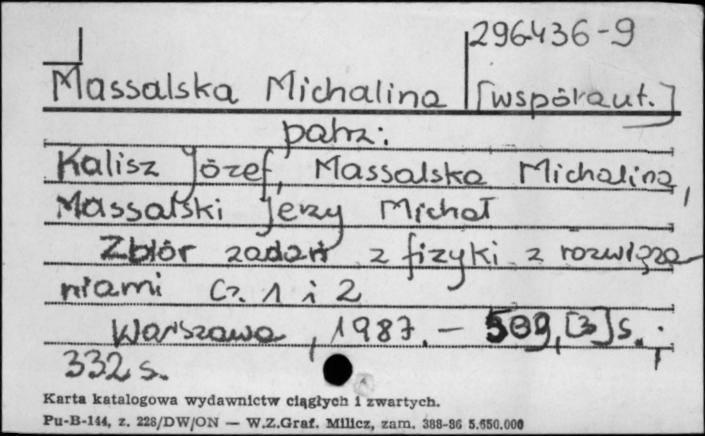 296436-9
Massalska Michalina [współaut.]
patrz:
Kalisz Józef, Massalska Michalina,
Massalski Jerzy Michał
Zbiór zadań z fizyki z rozwiąza
niami Cz. 1 i 2
Warszawa, 1987. — 509, [3] s. ;
332 s.
Karta katalogowa wydawnictw ciągłych i zwartych.
Pu-B-144, z. 228/DW/ON — W.Z.Graf. Milicz, zam. 388-86 5.650.000